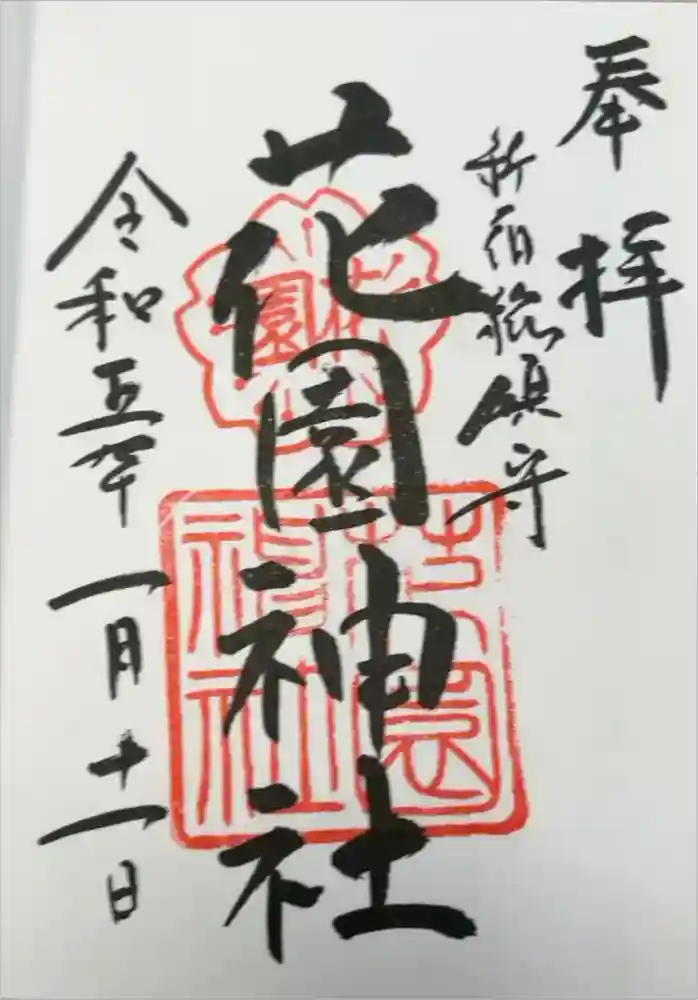 奉拝
新宿総鎮守
花園神社
花園
花園神社
令和五年一月十一日